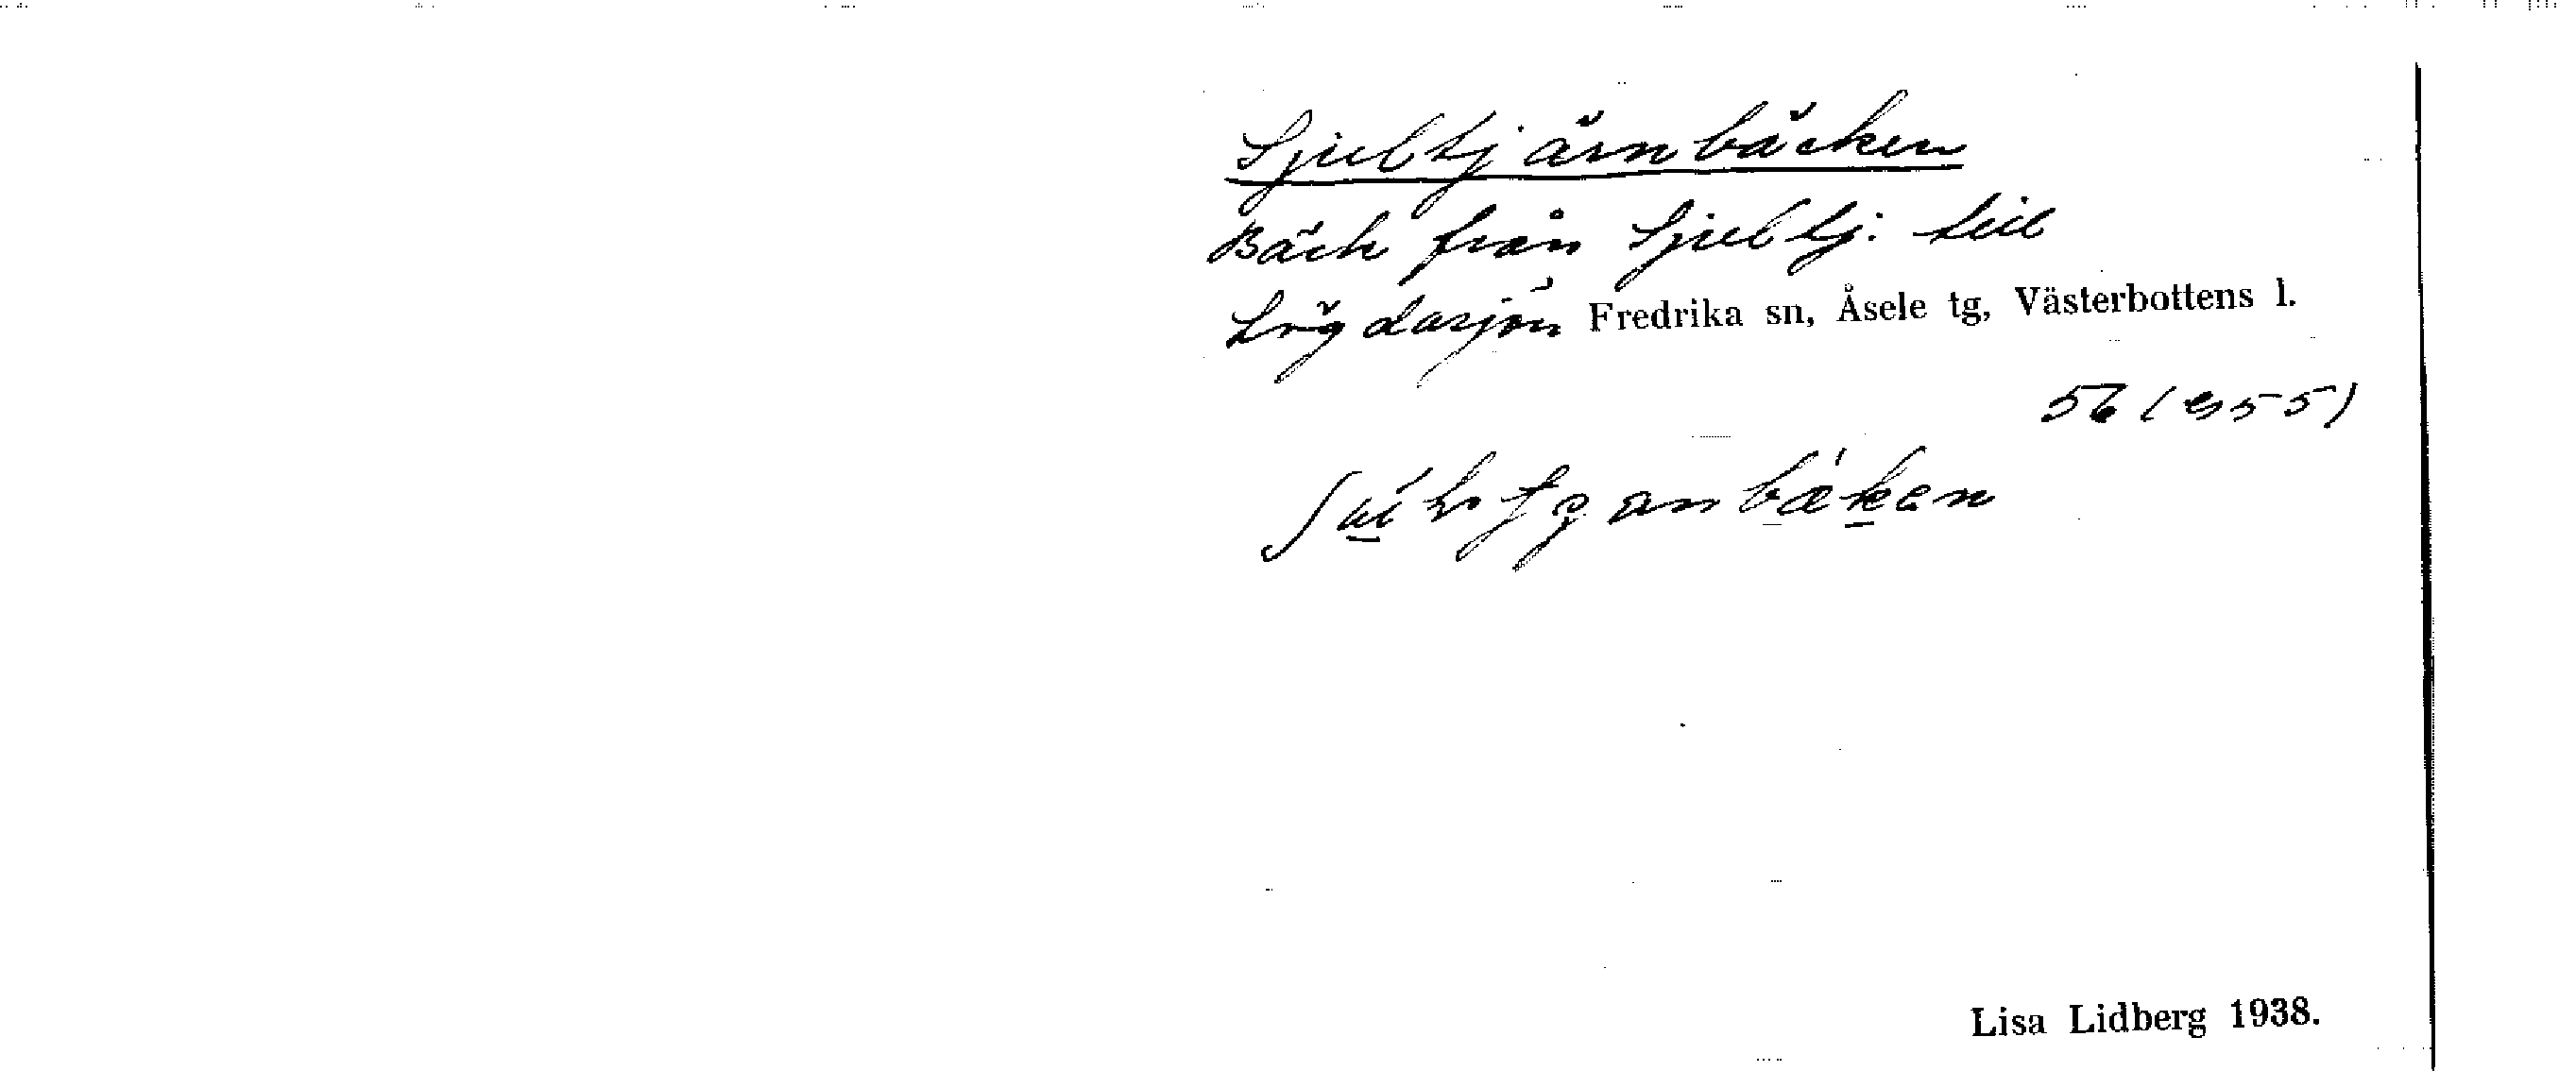 Sjultjärnbäcken
Bäck från Sjultj. till
Lögdasjön Fredrika sn, Åsele tg, Västerbottens l.
56 (
Lisa Lidberg 1938.